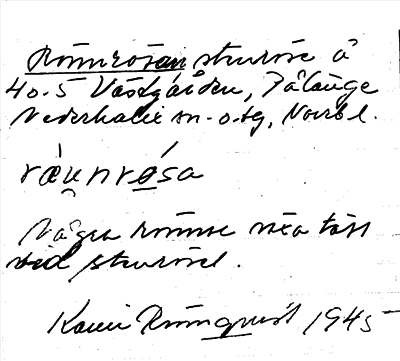 Rönnrösan stenröse å
40.5 Västgården, Pålänge
Nederkalix sn. o. tg, Norrb l.
ràu̯nrǿsa
Några rönnar växa tätt
vid stenröset.
Karin Rönnquist 1945